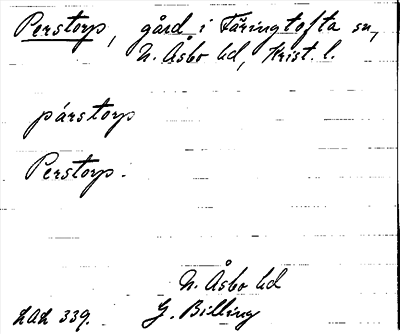 Perstorp, gård i Färingtofta sn,
N. Åsbo hd, Krist. l.
pærstorp
Perstorp.
N. Åsbo hd
LAL 339. G. Billing